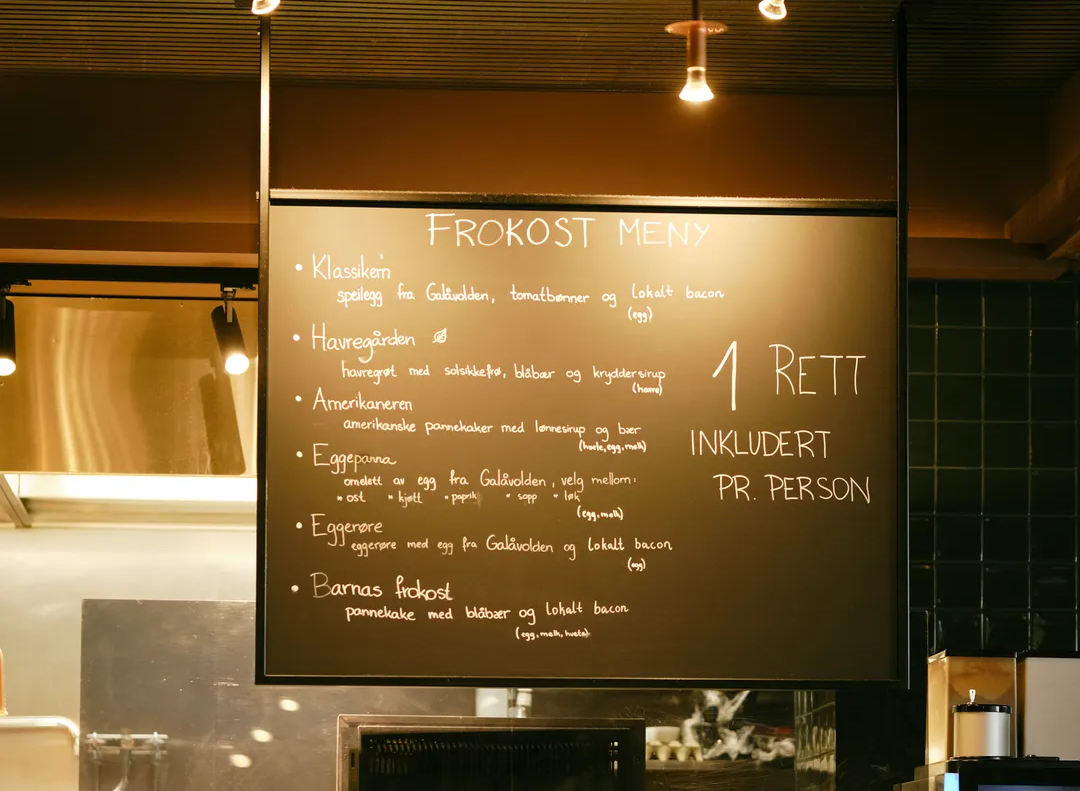 FROKOST MENY
• Klassiker'n
speilegg fra Galåvolden, tomatbønner og lokalt bacon
(egg)
• Havregården
havregrøt med solsikkefrø, blåbær og kryddersirup
(havre)
• Amerikaneren
amerikanske pannekaker med lønnesirup og bær
(hvete, egg, melk)
• Eggepanna
omelett av egg fra Galåvolden, velg mellom:
* ost * kjøtt * paprika * sopp * løk
(egg, melk)
• Eggerøre
eggerøre med egg fra Galåvolden og lokalt bacon
(egg)
• Barnas frokost
pannekake med blåbær og lokalt bacon
(egg, melk, hvete)
1 RETT
INKLUDERT
PR. PERSON